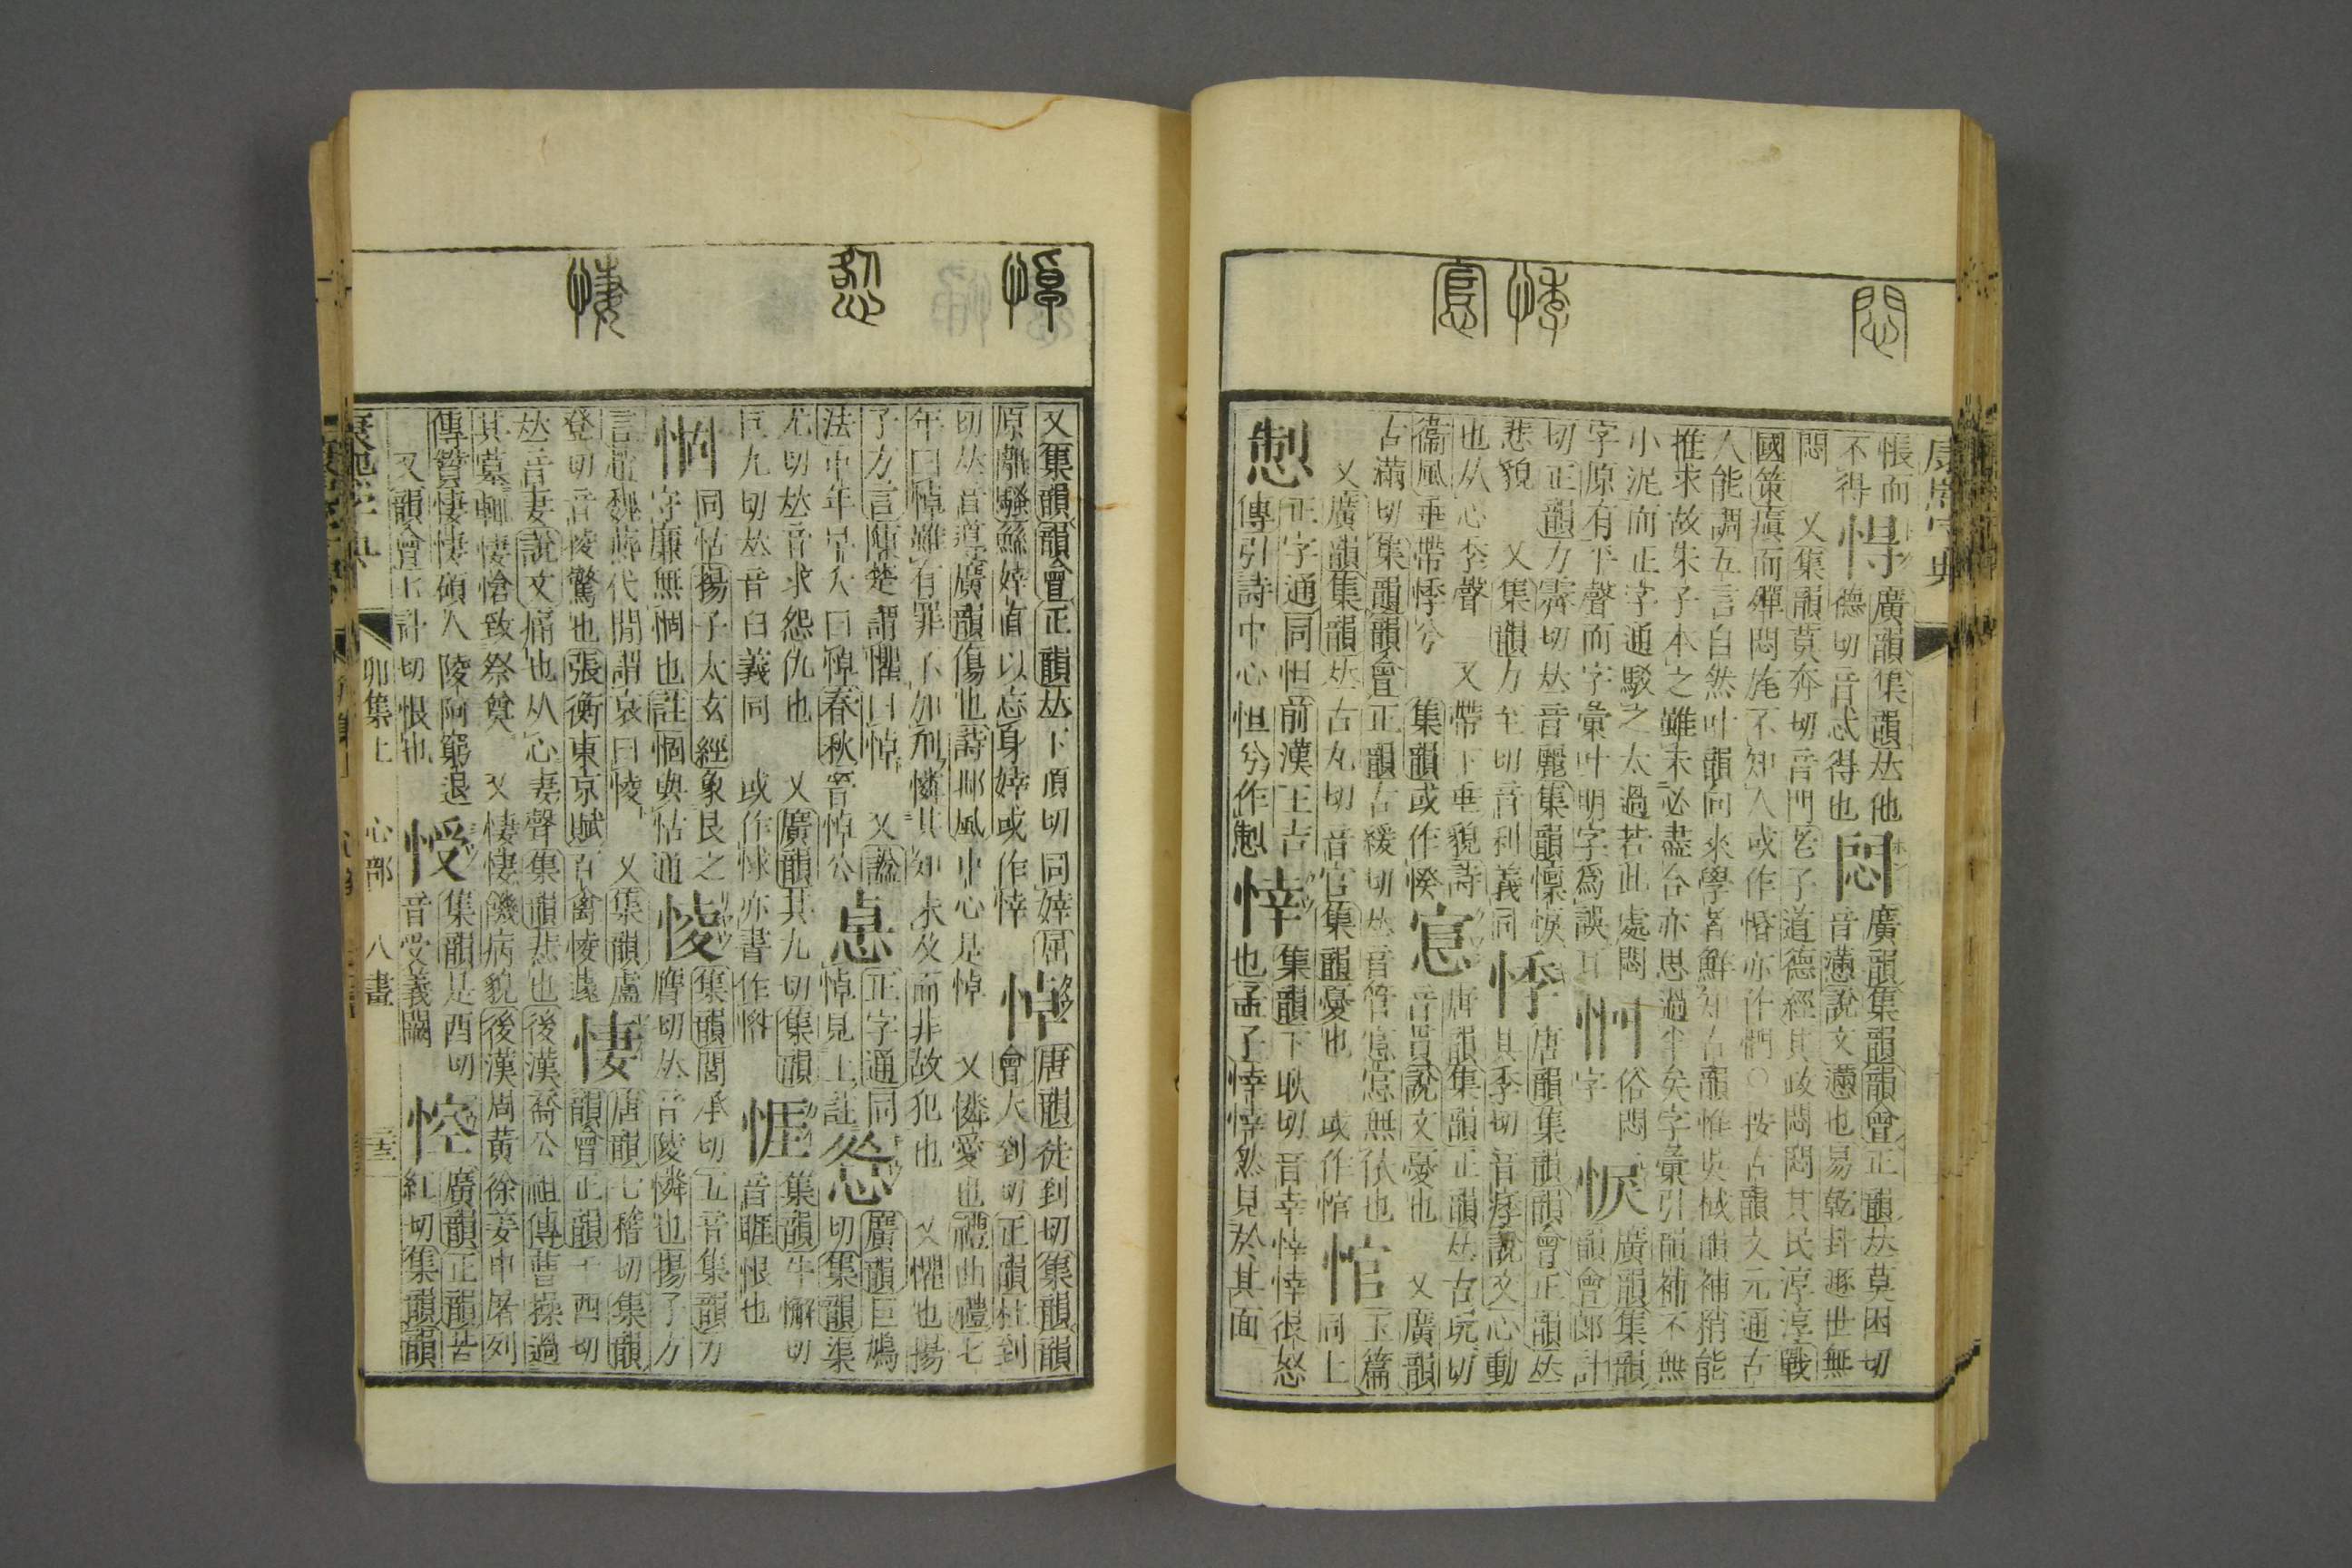 康熙字典
悶 悸 悹
悵而
不得
㝵 廣韻集韻𠀤他
德切音忒得也
悶 廣韻集韻韻會正韻𠀤莫困切
音懣說文懣也易乾卦遯世無
悶 又集韻莫奔切音門老子道德經其政悶悶其民淳淳戰
國策瘨而殫悶旄不知人或作惛亦作們○按古韻文元通古
人能調五言自然叶韻向來學者鮮知古韻惟吳棫韻補稍能
推求故朱子本之雖未必盡合亦思過半矣字彙引韻補不無
小泥而正字通駁之太過若此處悶
字原有平聲而字彙叶明字爲誤耳
俗悶
字
悷 廣韻集韻
韻會郎計
切正韻力霽切𠀤音麗集韻懍悷
悲貌 又集韻力至切音利義同
悸 唐韻集韻韻會正韻𠀤
其季切音痵說文心動
也从心季聲 又帶下垂貌詩
衞風垂帶悸兮 集韻或作㥍
悹 唐韻集韻正韻𠀤古玩切
音貫說文憂也 又廣韻
古滿切集韻韻會正韻古緩切𠀤音管悹悹無依也
又廣韻集韻𠀤古丸切音官集韻憂也 或作悺
悺 玉篇
同上
㤠 正字通同怛前漢王吉
傳引詩中心怛兮作㤠
悻 集韻下耿切音幸悻悻很怒
也孟子悻悻然見於其面
悼 悽
又集韻韻會正韻𠀤下頂切同婞屈
原離騷鯀婞直以忘身婞或作悻
悼 唐韻徒到切集韻韻
會大到切正韻杜到
切𠀤音導廣韻傷也詩邶風中心是悼 又憐愛也禮曲禮七
年曰悼雖有罪不加刑憐其知未及而非故犯也 又懼也揚
子方言陳楚謂懼曰悼 又諡
法中年早夭曰悼春秋晉悼公
𢛎 正字通同
悼見上註
㤹 廣韻巨鳩
切集韻渠
尤切𠀤音求怨仇也 又廣韻其九切集韻
巨九切𠀤音臼義同 或作㤹亦書作㥩
㤞 集韻牛懈切
音睚恨也
㤱 同怙揚子太玄經象艮之
字廉無㤱也註㤱與怙通
㥄 集韻閭承切五音集韻力
膺切𠀤音陵憐也揚子方
言趙魏燕代閒謂哀曰㥄 又集韻盧
登切音㥄驚也張衡東京賦百禽㥄遽
悽 唐韻七稽切集韻
韻會正韻千西切
𠀤音妻說文痛也从心妻聲集韻悲也後漢喬公祖傳曹操過
其墓輒悽愴致祭奠 又悽悽饑病貌後漢周黃徐姜申屠列
傳贊悽悽碩人陵阿窮退
又韻會七計切恨也
㥅 集韻是酉切
音受義闕
悾 廣韻正韻苦
紅切集韻韻
康熙字典 卯集上 心部 八畫 三三